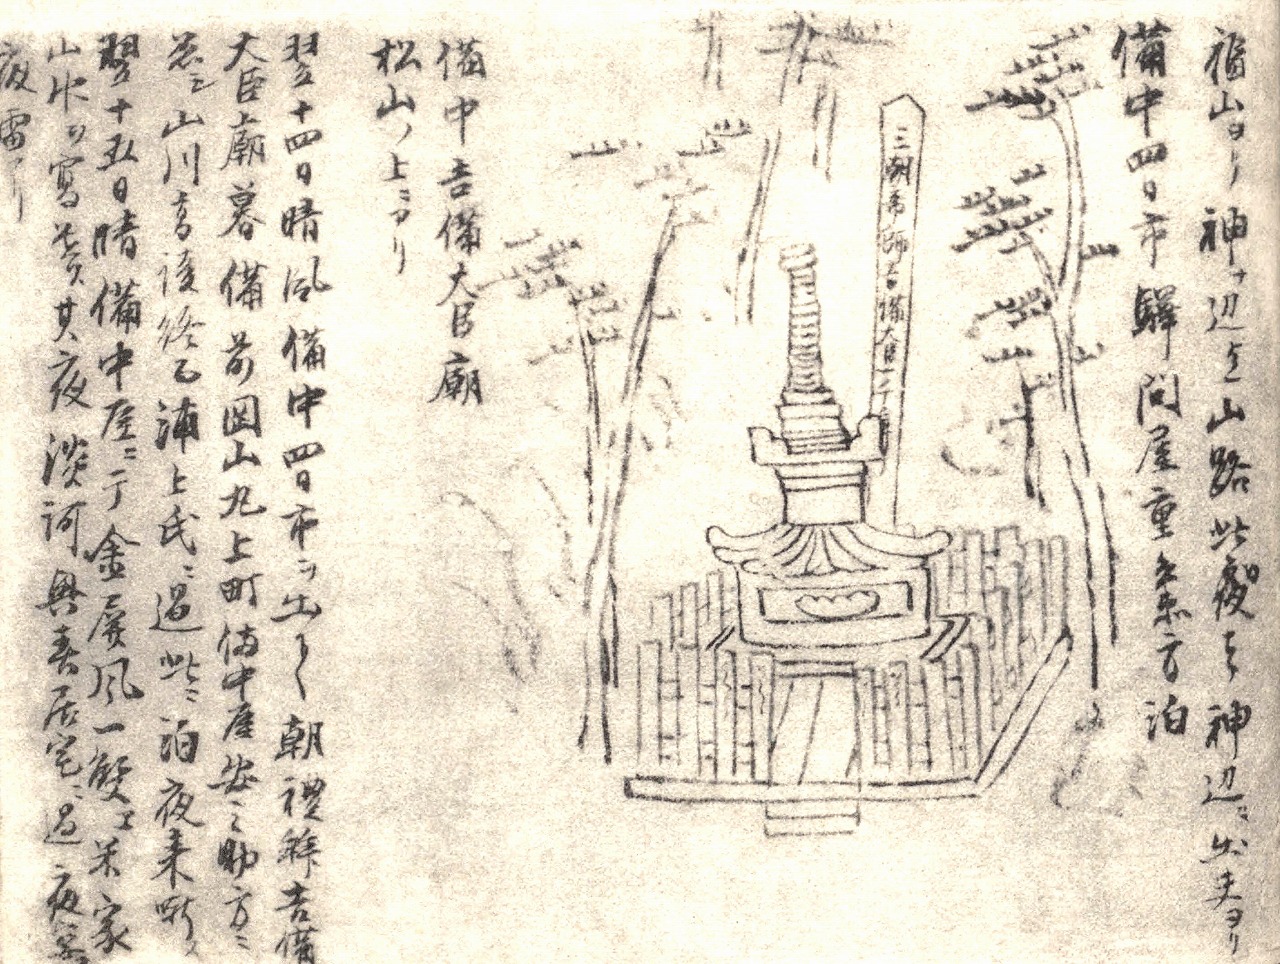 福山ヨリ神ナ辺迄山路此夜ハ神辺ニ出夫ヨリ
備中四日市驛問屋重兵衛方泊
三朝帝師吉備大臣
備中吉備大臣廟
松山ノ上ニアリ
翌十四日晴風備中四日市ヲ出 朝禮拜吉備
大臣廟暮備前岡山九上町備中屋 之助方ニ
山川 終 浦上氏ニ過此ニ泊夜来
翌十五日晴備中屋ニ丁金屏風一雙 米家
山水ヲ寫 其夜淡河興春居宅ニ過夜
夜雷アリ